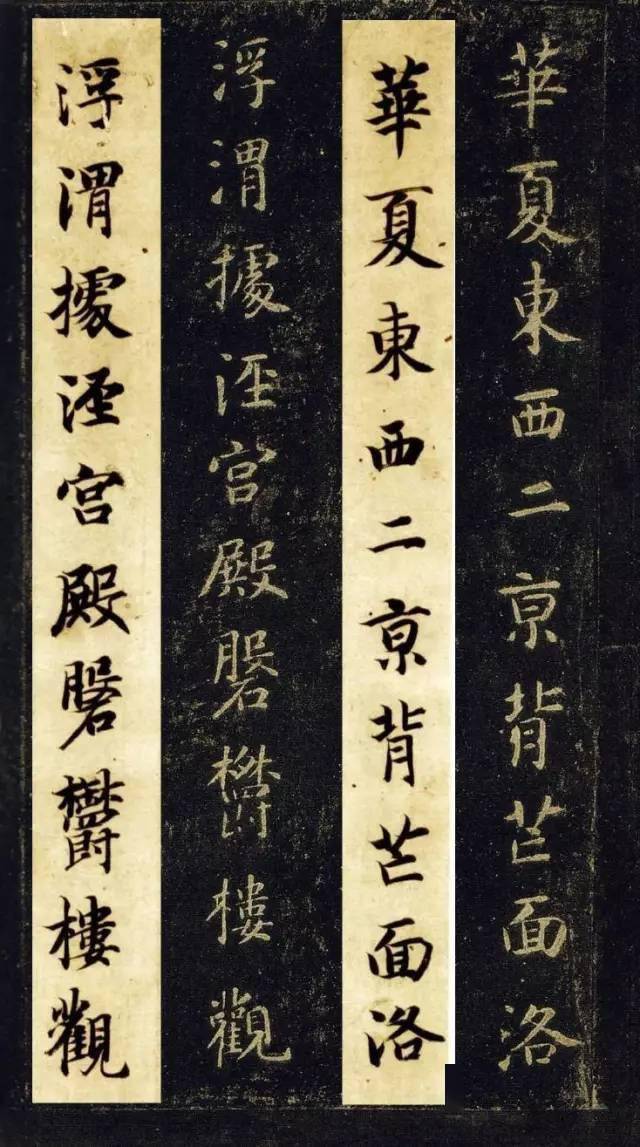 華夏東西二亰背芒面洛
華夏東西二亰背芒面洛
浮渭據涇宫殿磐鬱樓觀
浮渭據涇宫殿磐鬱樓觀